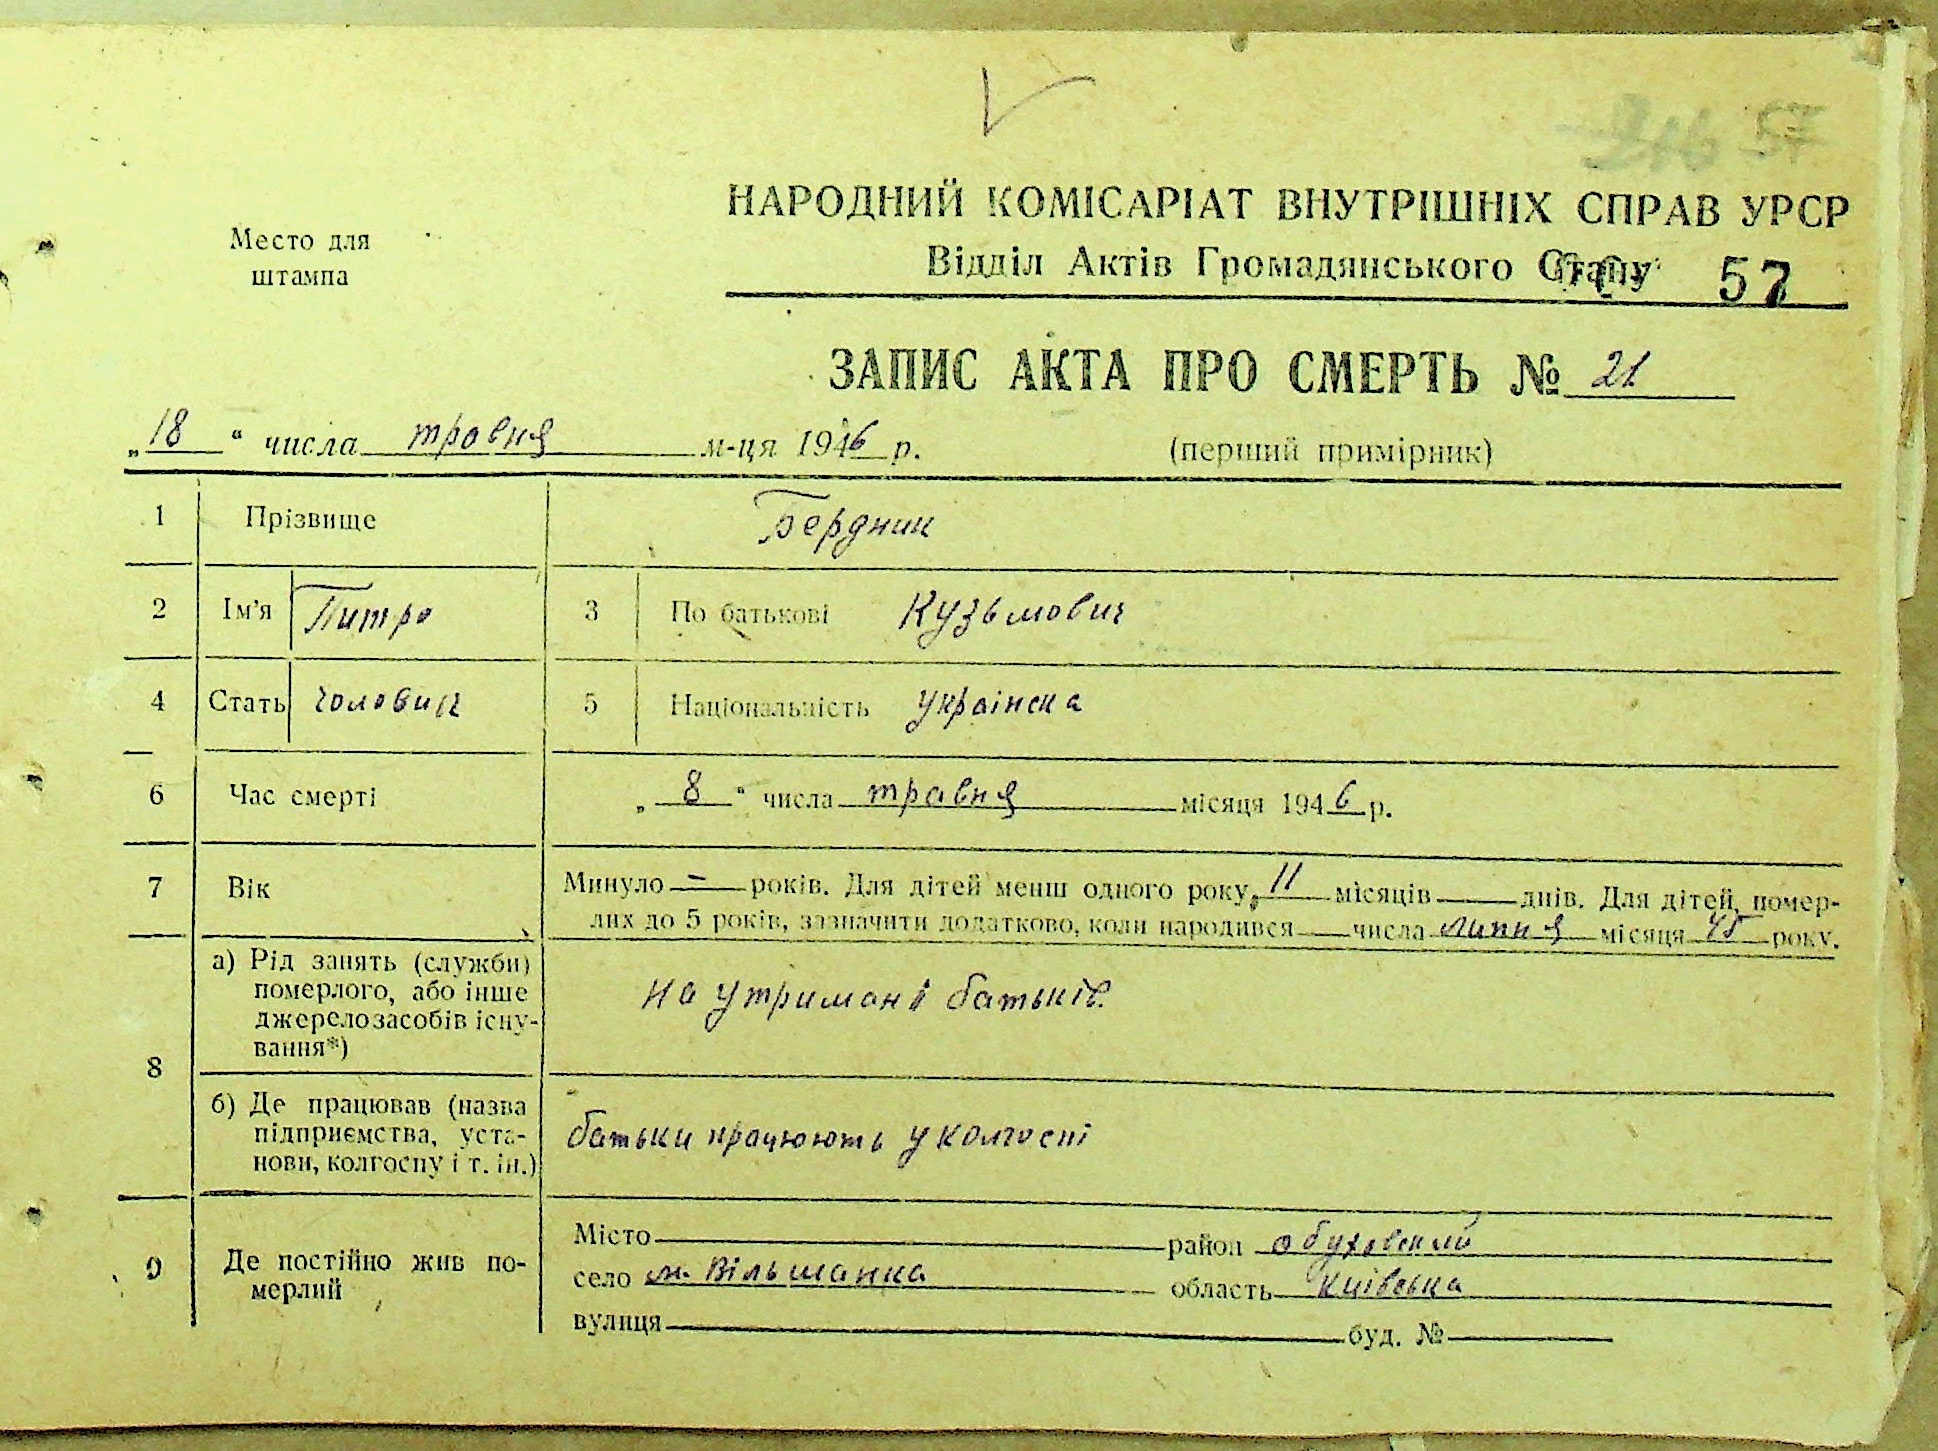 57
НАРОДНИЙ КОМІСАРІАТ ВНУТРІШНІХ СПРАВ УРСР
Место для
штампа
Відділ Актів Громадянського Стану
57
ЗАПИС АКТА ПРО СМЕРТЬ № 21
„18“ числа травня м-ця 1946 р. (перший примірник)
1 Прізвище Бердник
2 Ім'я Питро 3 По батькові Кузьмович
4 Стать чолович 5 Національність українска
6 Час смерті „8“ числа травня місяця 1946 р.
7 Вік Минуло – років. Для дітей менш одного року, 11 місяців — днів. Для дітей, помер-
лих до 5 років, зазначити додатково, коли народився — числа липня місяця 45 року.
8 а) Рід занять (служби)
померлого, або інше
джерело засобів існу-
вання*)
на утримані батьків.
б) Де працював (назва
підприємства, уста-
нови, колгоспу і т. ін.)
батьки працюють у колгоспі
9 Де постійно жив по-
мерлий
Місто — район обуховский
село м. Вільшанка область київська
вулиця — буд. № —